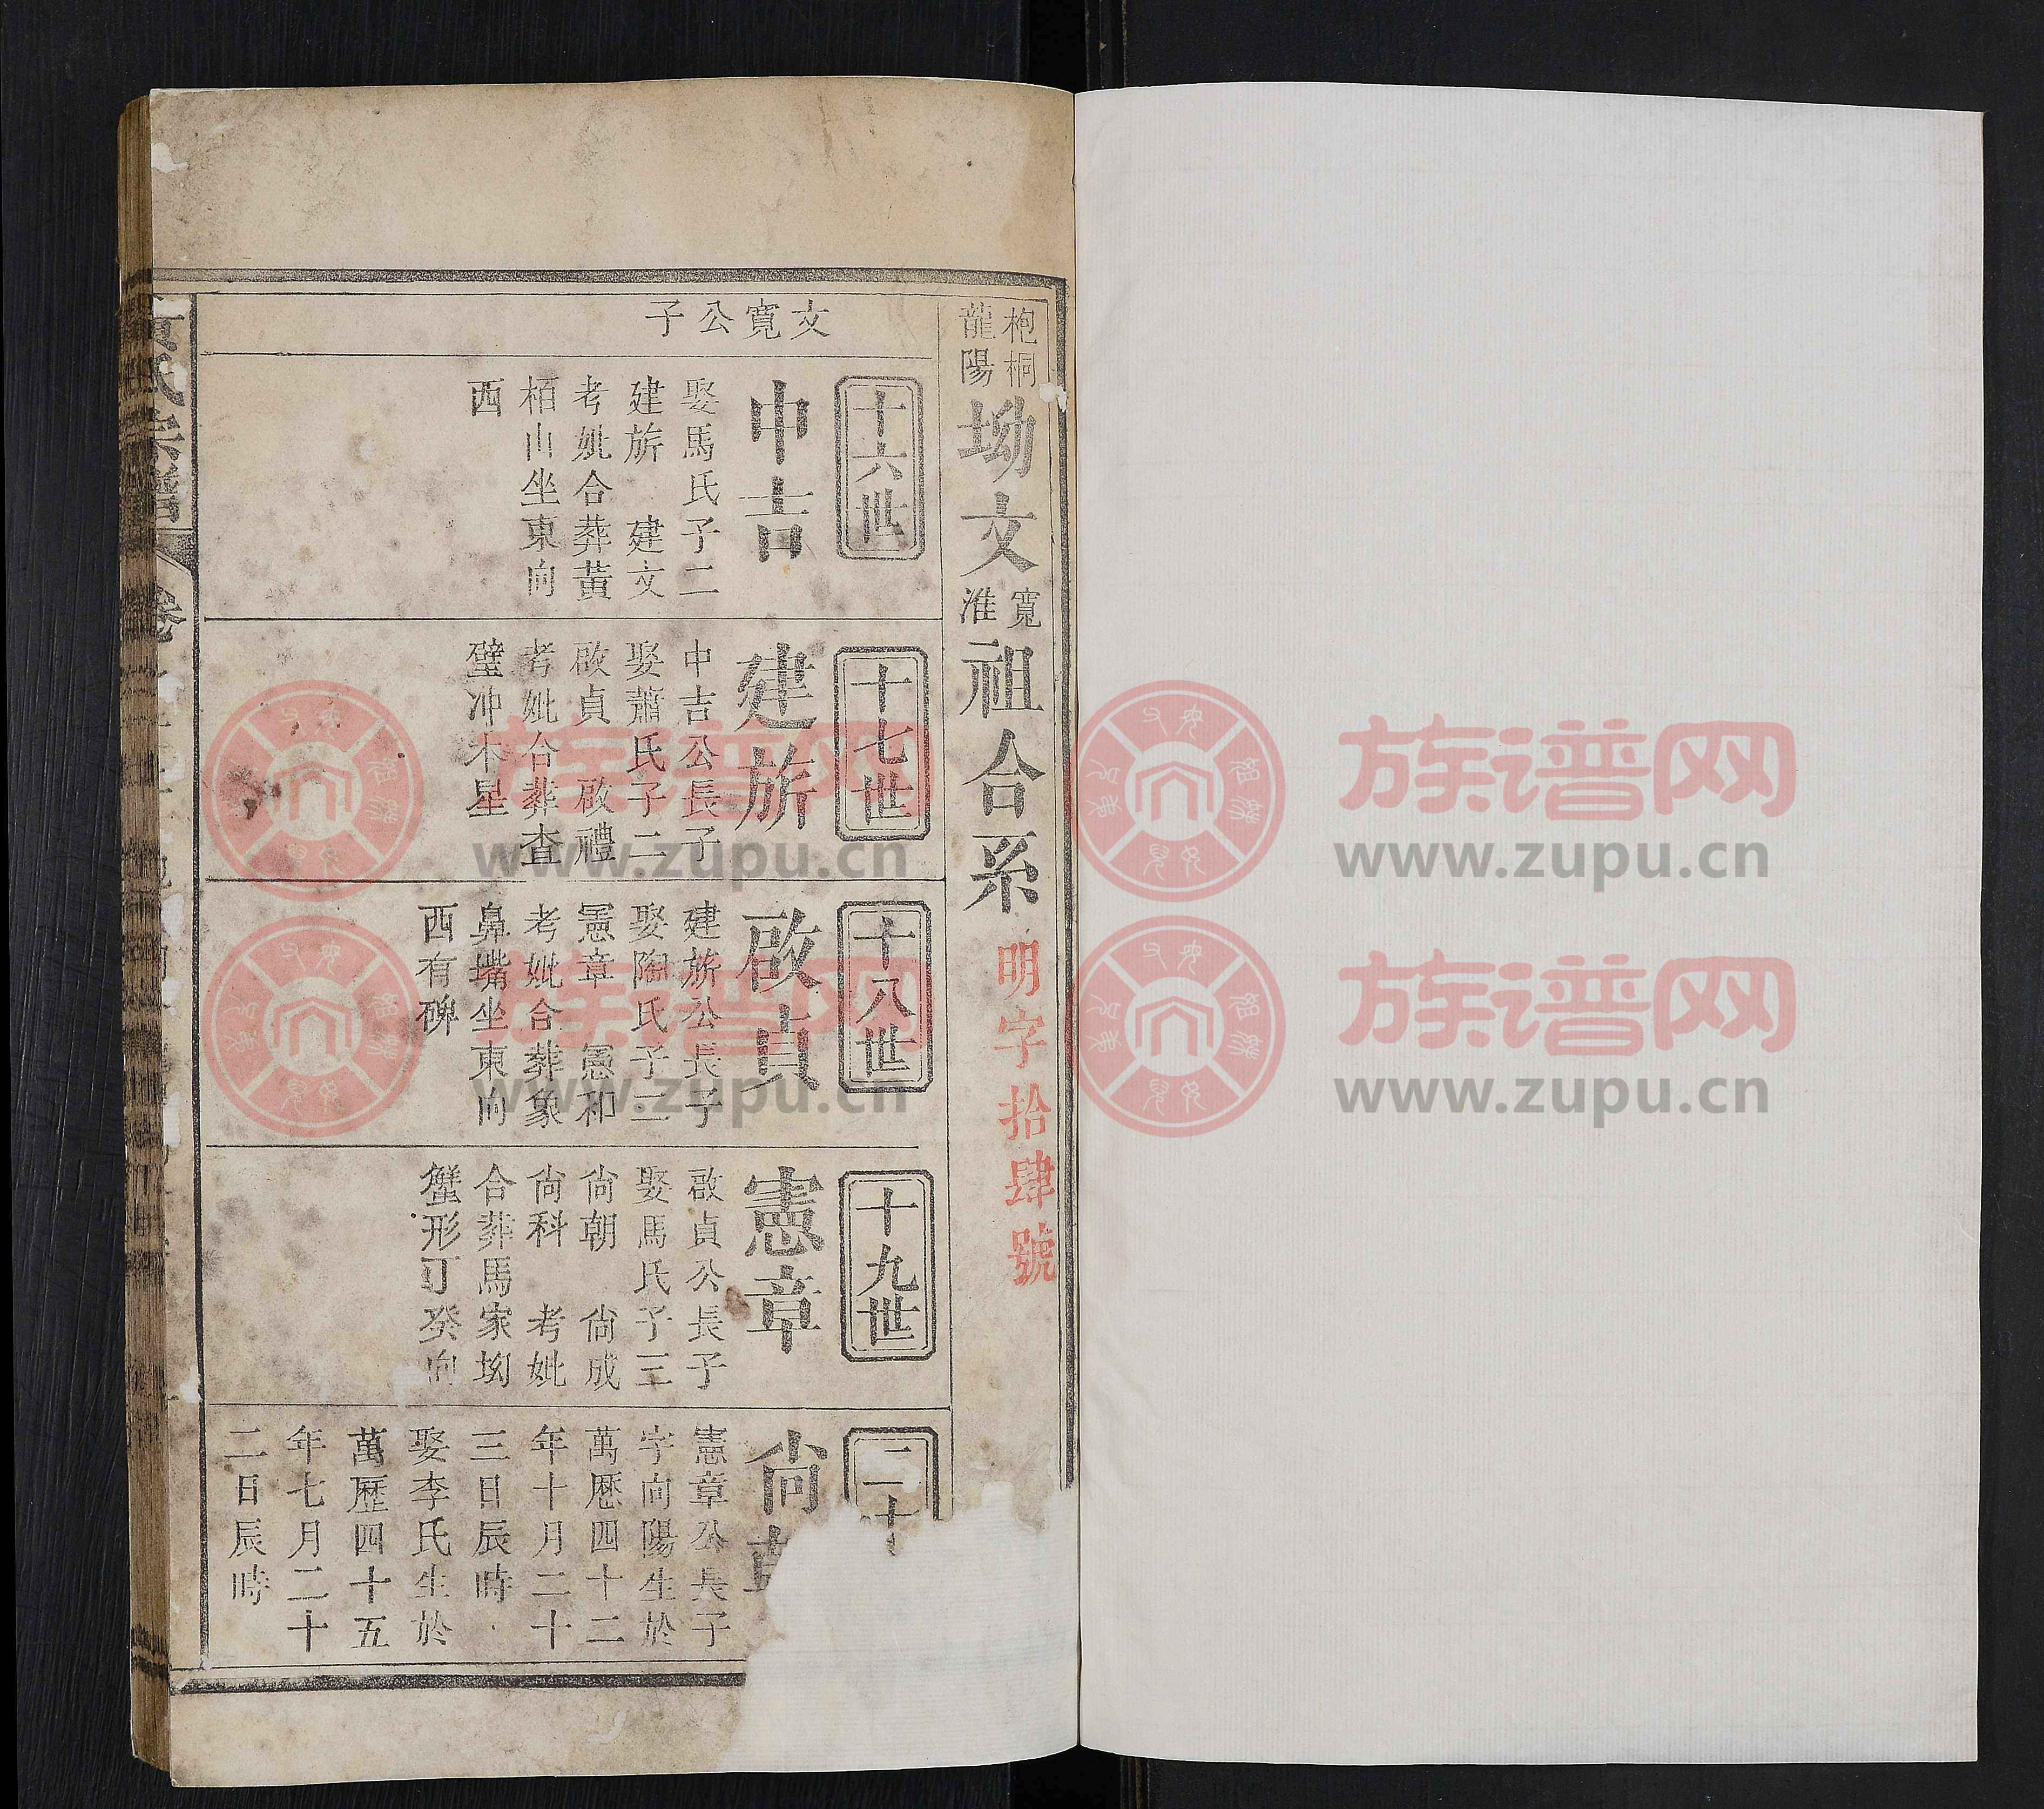 枹桐
龍陽
坳文
寬
淮
祖合系
明字拾肆號
文寬公子
十六世
中吉
娶馬氏子二
建旂　建文
考妣合葬黃
栢山坐東向
西
十七世
建旂
中吉公長子
娶蕭氏子二
啟貞　啟禮
考妣合葬査
璧冲木星
十八世
啟貞
建旂公長子
娶陶氏子二
憲章　憲和
考妣合葬象
鼻嘴坐東向
西有碑
十九世
憲章
啟貞公長子
娶馬氏子三
尙朝　尙成
尙科　考妣
合葬馬家坳
蟹形丁癸向
二十
尙
憲章公長子
字向陽生於
萬歷四十二
年十月二十
三日辰時
娶李氏生於
萬歷四十五
年七月二十
二日辰時
氏宗譜
卷
族谱网
www.zupu.cn
族谱网
www.zupu.cn
族谱网
www.zupu.cn
族谱网
www.zupu.cn